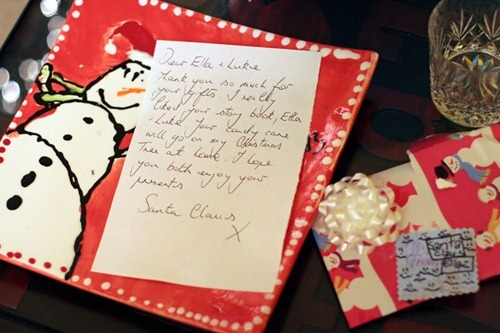 Dear Ella & Luke
Thank you so much for
your gifts. I really
liked your story book, Ella
& Luke your candy cane
will go on my Christmas
Tree at home. I hope
you both enjoy your
presents
Santa Claus
X